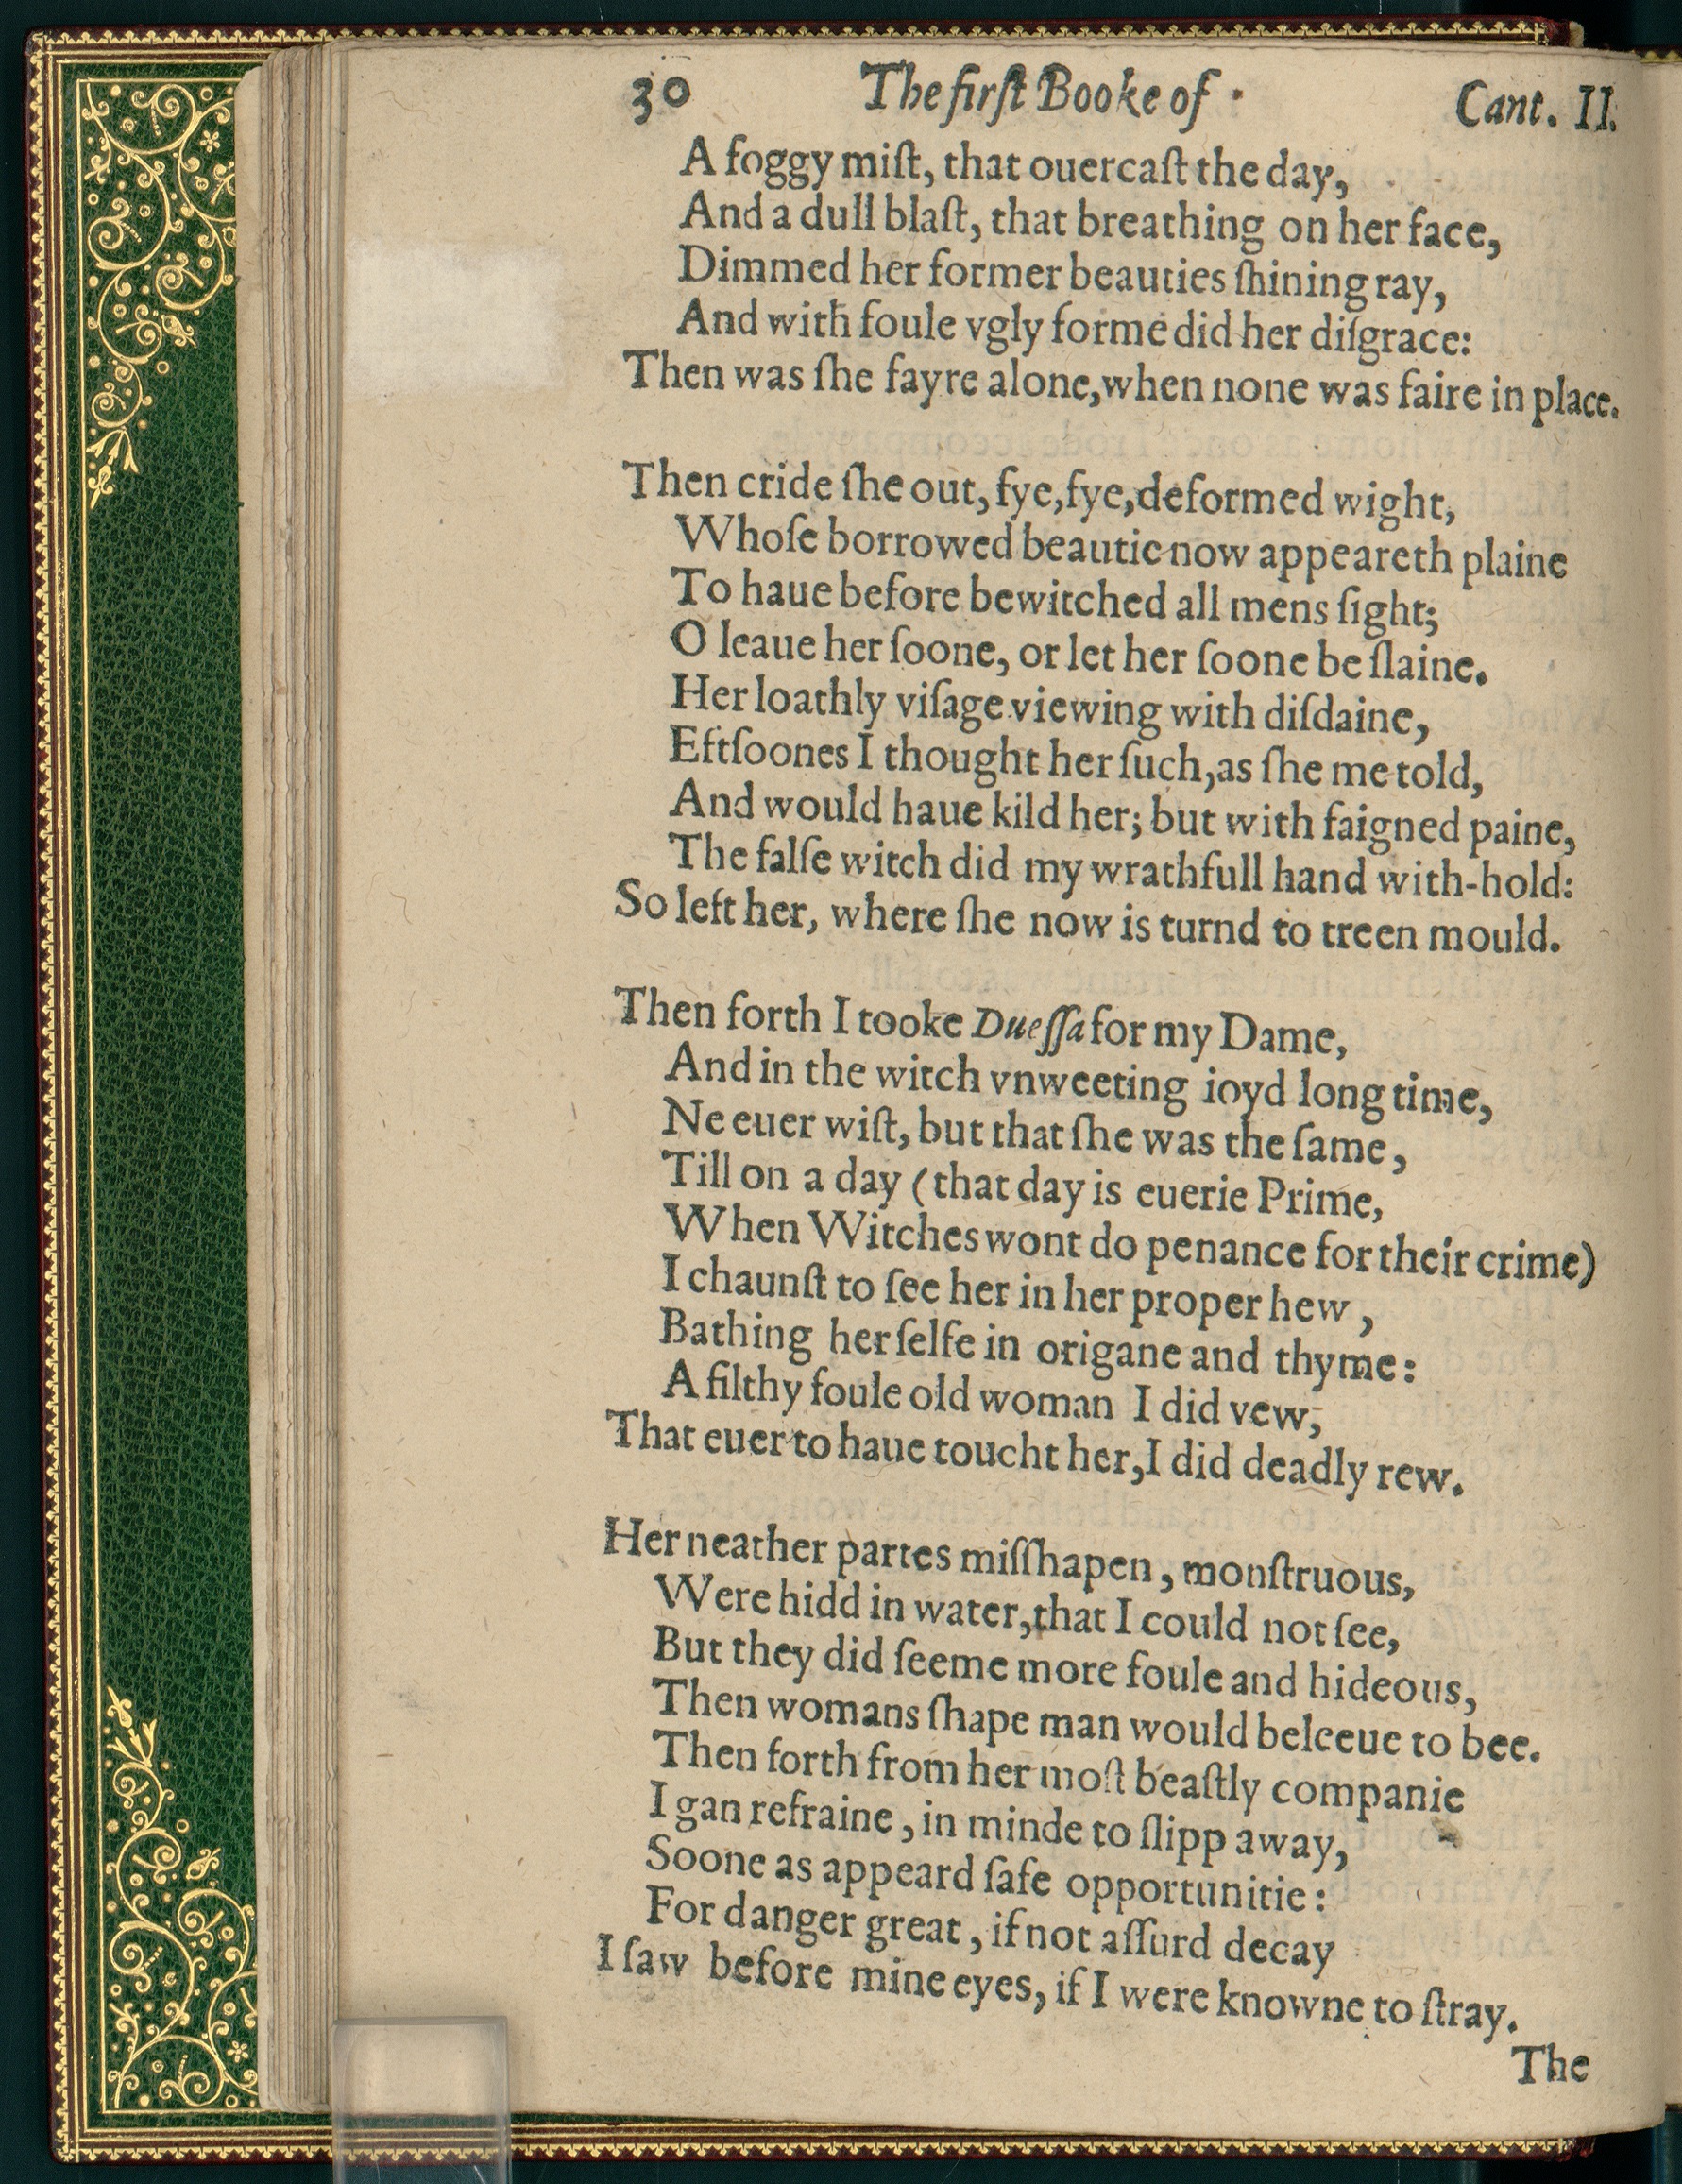 30 The firſt Booke of Cant. II.
A foggy miſt, that ouercaſt the day,
And a dull blaſt, that breathing on her face,
Dimmed her former beauties ſhining ray,
And with foule vgly forme did her diſgrace:
Then was ſhe fayre alone, when none was faire in place.
Then cride ſhe out, fye, fye, deformed wight,
Whoſe borrowed beautie now appeareth plaine
To haue before bewitched all mens ſight;
O leaue her ſoone, or let her ſoone be ſlaine.
Her loathly viſage viewing with diſdaine,
Eftſoones I thought her ſuch, as ſhe me told,
And would haue kild her; but with faigned paine,
The falſe witch did my wrathfull hand with-hold:
So left her, where ſhe now is turnd to treen mould.
Then forth I tooke Dueſſa for my Dame,
And in the witch vnweeting ioyd long time,
Ne euer wiſt, but that ſhe was the ſame,
Till on a day (that day is euerie Prime,
When Witches wont do penance for their crime)
I chaunſt to ſee her in her proper hew,
Bathing her ſelfe in origane and thyme:
A filthy foule old woman I did vew,
That euer to haue toucht her, I did deadly rew.
Her neather partes miſſhapen, monſtruous,
Were hidd in water, that I could not ſee,
But they did ſeeme more foule and hideous,
Then womans ſhape man would beleeue to bee.
Then forth from her moſt beaſtly companie
I gan refraine, in minde to ſlipp away,
Soone as appeard ſafe opportunitie:
For danger great, if not aſſurd decay
I ſaw before mine eyes, if I were knowne to ſtray.
The